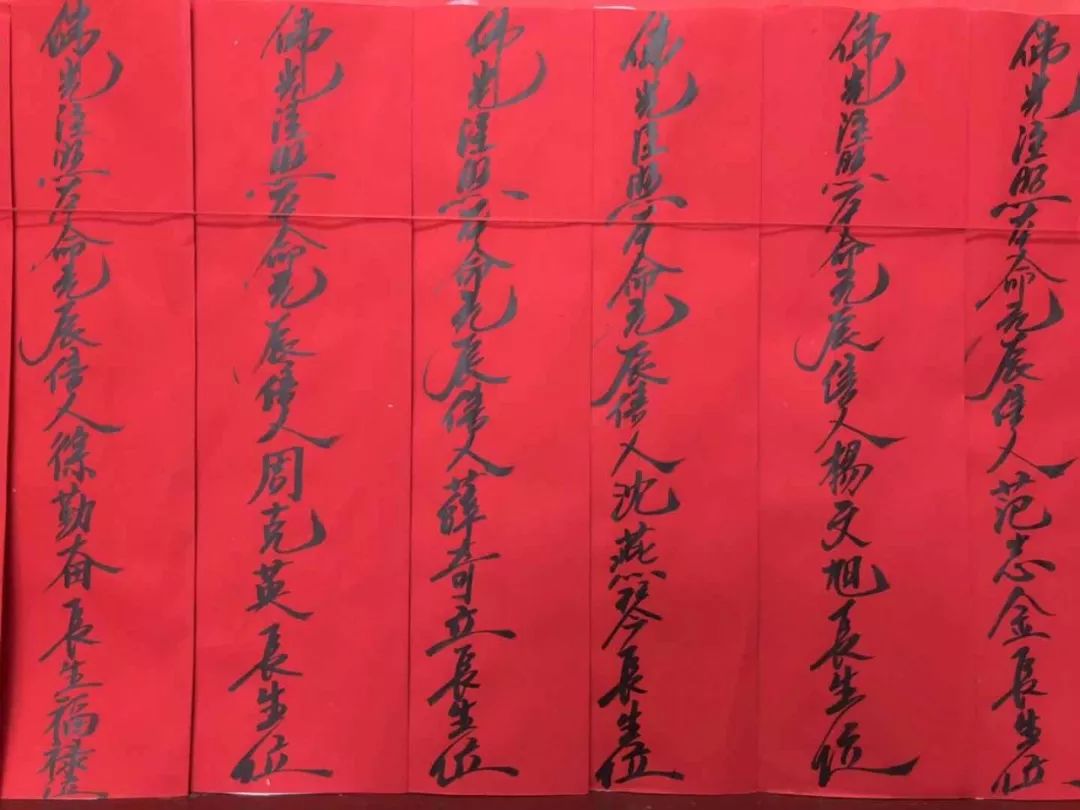 佛光注照本命元辰信人范志金長生位
佛光注照本命元辰信人楊文旭長生位
佛光注照本命元辰信人沈燕琴長生位
佛光注照本命元辰信人薛奇立長生位
佛光注照本命元辰信人周克英長生位
佛光注照本命元辰信人徐勤奋長生福禄位